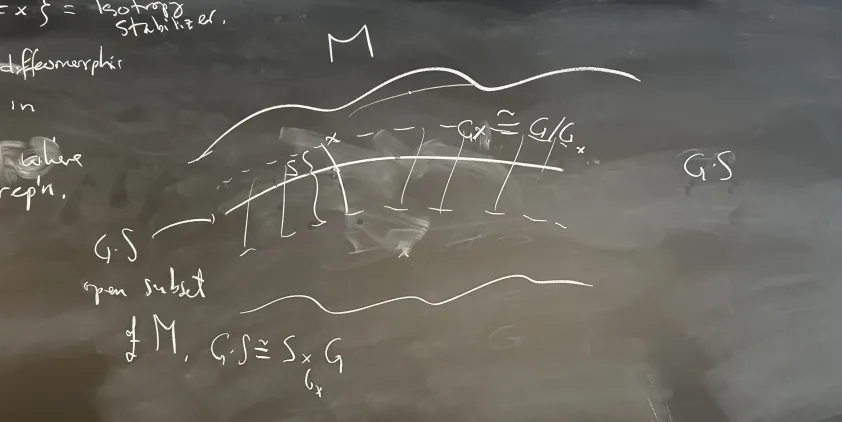 = x } = Isotropy
Stabilizer.
diffeomorphic
in
where
rep'n.
M
x
Gx ≅ G/Gₓ
S
G·S
G·S
open subset
of M. G·S ≅ S ×_{Gₓ} G